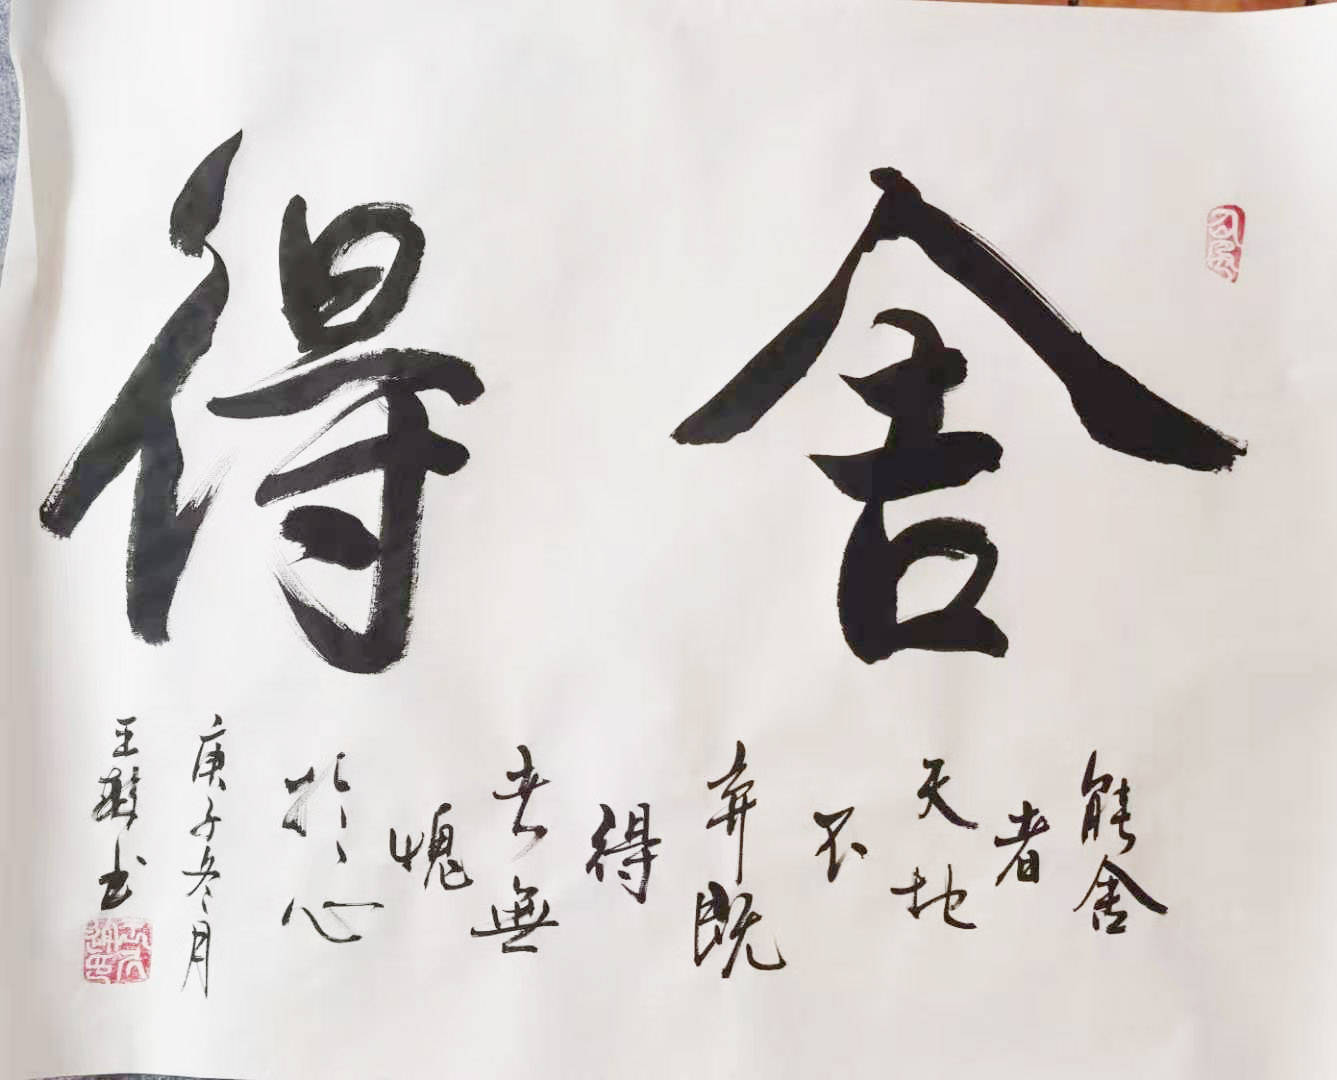 舍得
能舍
者
天地
不
弃既
得
者無
愧
於心
庚子冬月
王书